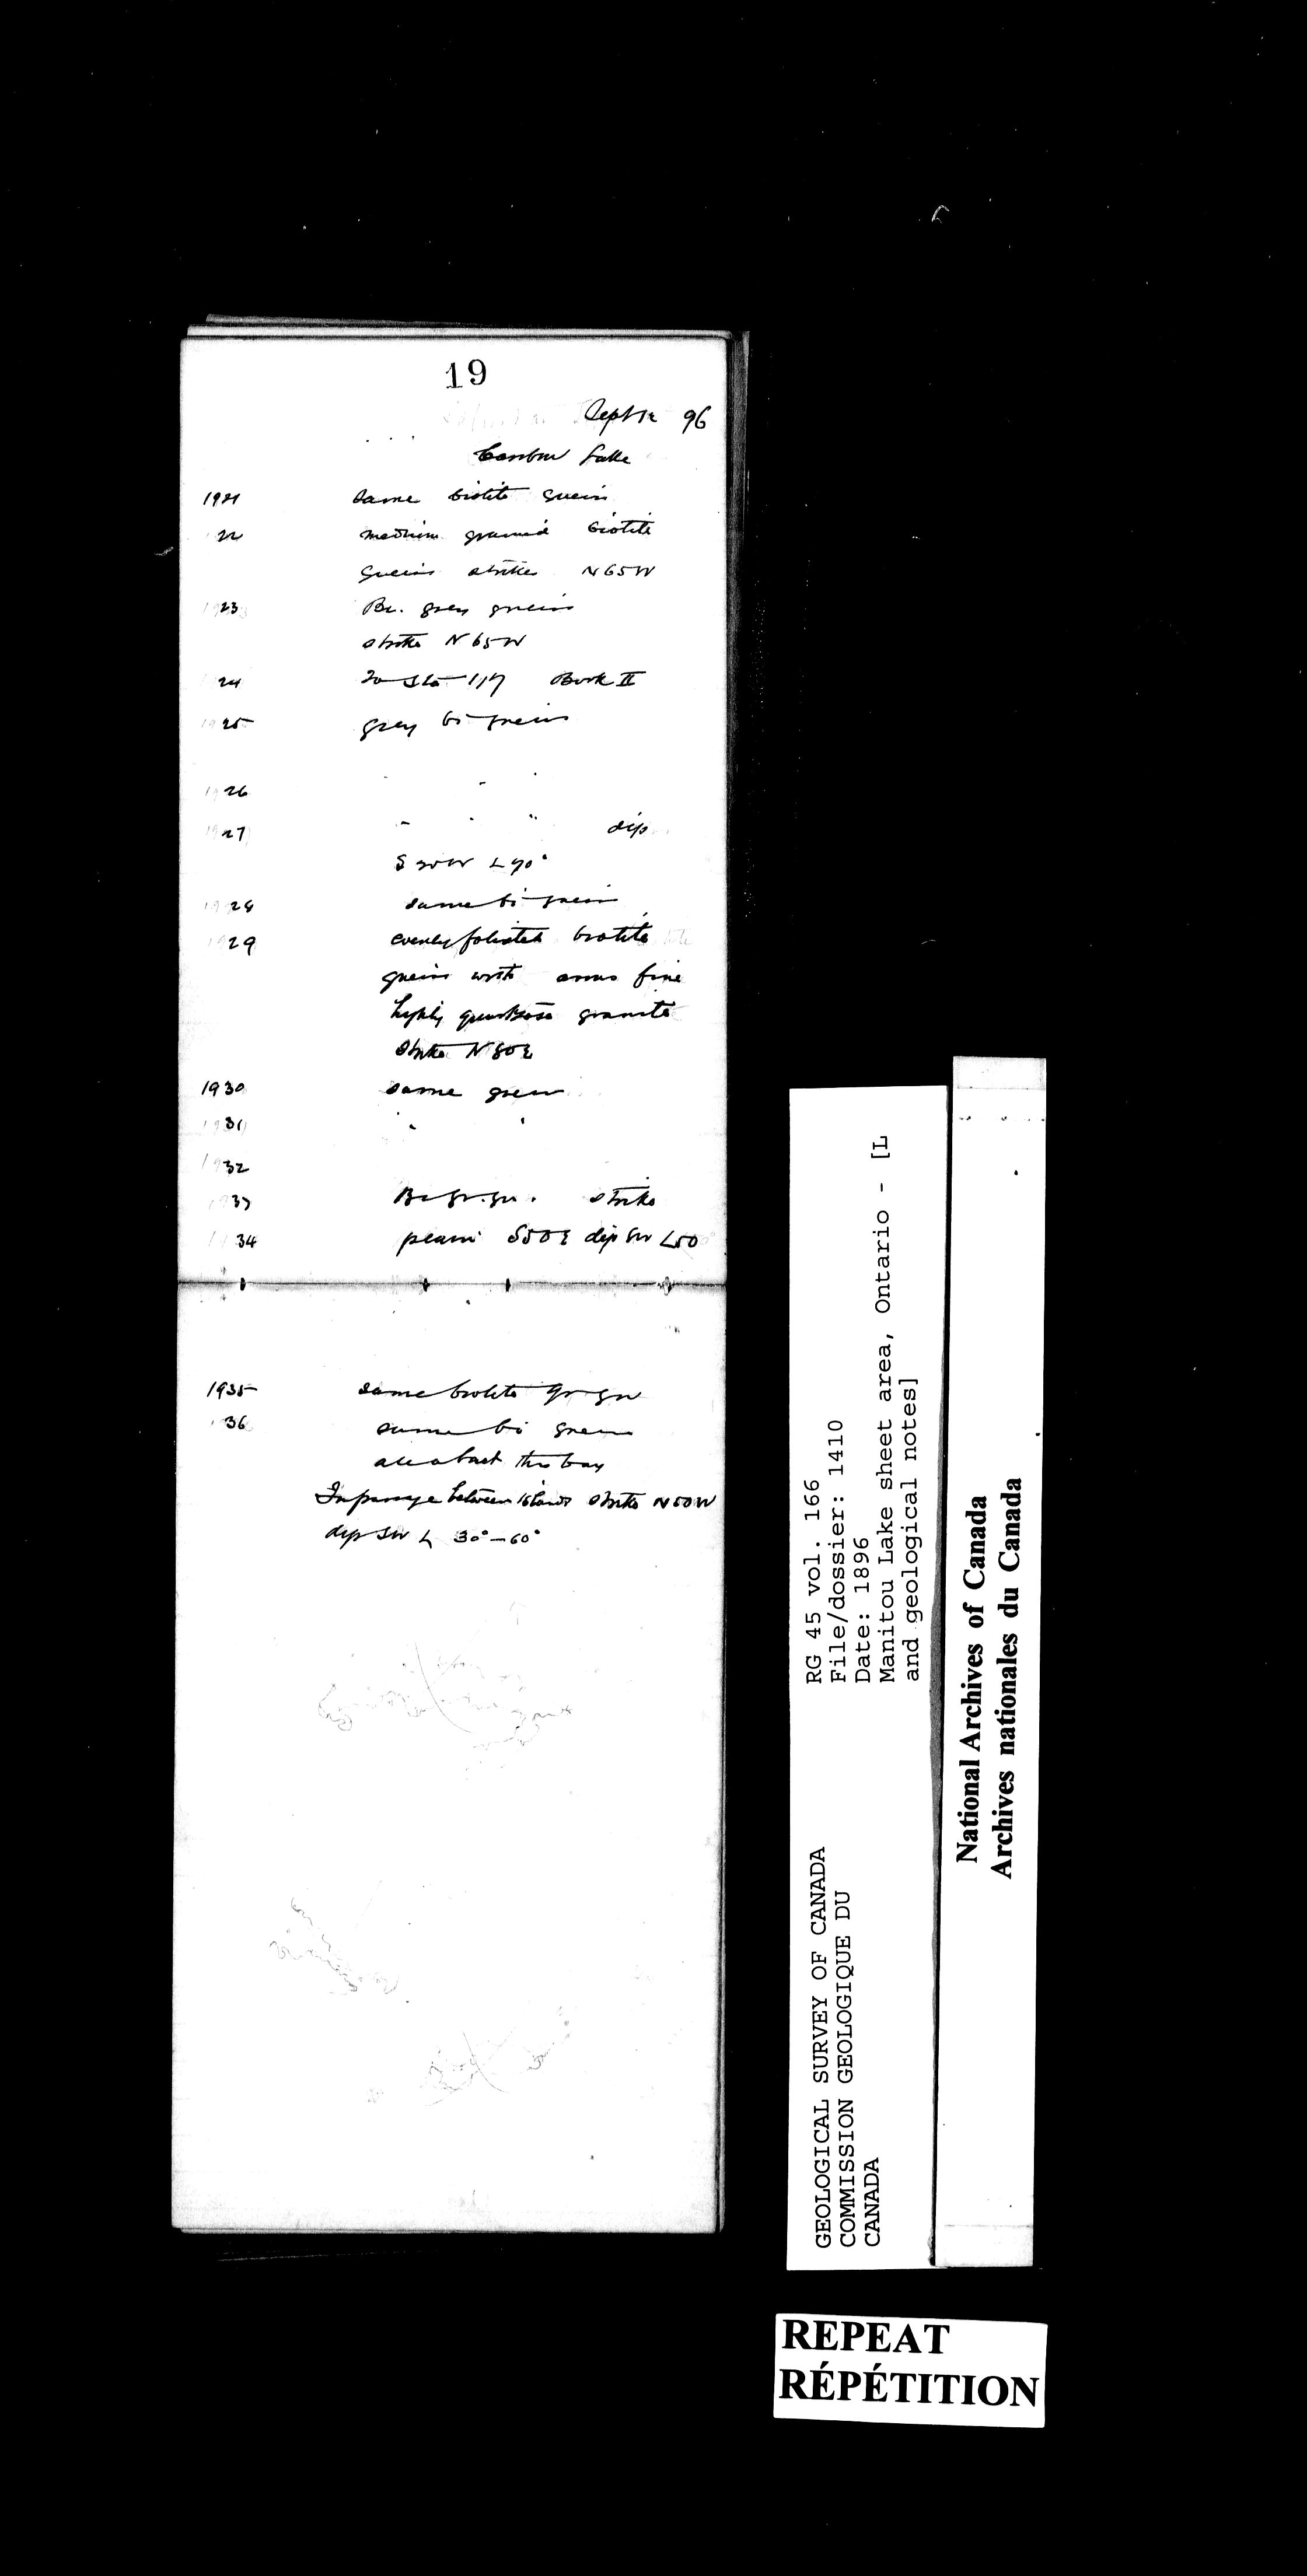 19
Sept 12 96
Lake
1921 same biotite gneiss
22 medium grained biotite
gneiss strike N65W
1923 Bi. grey gneiss
strike N65W
24 Book II
1925 grey bi gneiss
1926 " " "
1927 " " " dip
S 20W ∠ 70°
1928 same bi gneiss
1929 evenly foliated biotite
gneiss with some fine
highly quartzose granite
strike N80E
1930 same gneiss
1931 " "
1932
1933 Bi gr. gn. strike
1934 S50E dip SW ∠50°
1935 same biotite gr gn
36 same bi gneiss
all about this bay
In passage between islands strike N50W
dip SW ∠ 30°–60°
RG 45 vol. 166
File/dossier: 1410
Date: 1896
Manitou Lake sheet area, Ontario - [L
and geological notes]
GEOLOGICAL SURVEY OF CANADA
COMMISSION GEOLOGIQUE DU
CANADA
National Archives of Canada
Archives nationales du Canada
REPEAT
RÉPÉTITION